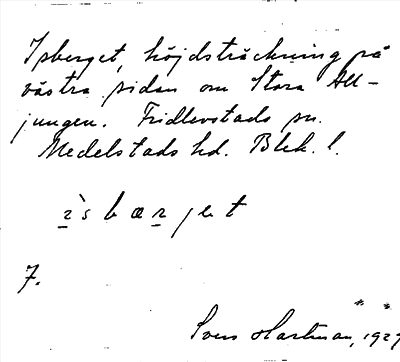 Isberget, höjdsträckning på
västra sidan om Stora All-
jungen. Fridlevstads sn.
Medelstads hd. Blek. l.
ɪ̀sbærjet
7.
Sven Hartman, 1929